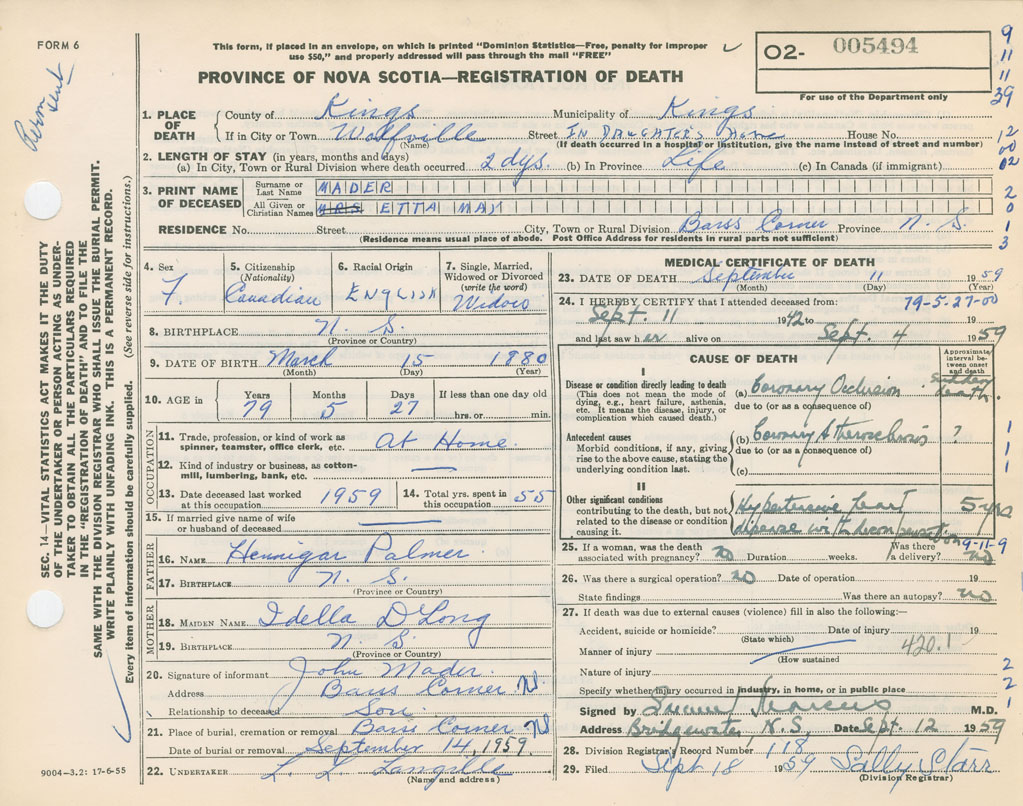 FORM 6
Perm sent
This form, if placed in an envelope, on which is printed "Dominion Statistics—Free, penalty for improper
use $50," and properly addressed will pass through the mail "FREE"
PROVINCE OF NOVA SCOTIA—REGISTRATION OF DEATH
02- 005494
For use of the Department only
9
11
11
39
12
00
02
2
0
1
3
1. PLACE OF DEATH { County of Kings Municipality of Kings
If in City or Town Wolfville Street IN DAUGHTER'S HOME House No.
(Name) (If death occurred in a hospital or institution, give the name instead of street and number)
2. LENGTH OF STAY (in years, months and days)
(a) In City, Town or Rural Division where death occurred 2 dys. (b) In Province Life (c) In Canada (if immigrant)
3. PRINT NAME OF DECEASED { Surname or Last Name MADER
All Given or Christian Names MRS ETTA MAY
RESIDENCE No. Street City, Town or Rural Division Barss Corner Province N. S.
(Residence means usual place of abode. Post Office Address for residents in rural parts not sufficient)
4. Sex F. 5. Citizenship (Nationality) Canadian 6. Racial Origin ENGLISH 7. Single, Married, Widowed or Divorced (write the word) Widow
8. BIRTHPLACE N. S.
(Province or Country)
9. DATE OF BIRTH March 15 1880
(Month) (Day) (Year)
10. AGE in Years 79 Months 5 Days 27 If less than one day old hrs. or min.
OCCUPATION
11. Trade, profession, or kind of work as spinner, teamster, office clerk, etc. At Home.
12. Kind of industry or business, as cotton-mill, lumbering, bank, etc. —
13. Date deceased last worked at this occupation 1959 14. Total yrs. spent in this occupation 55
15. If married give name of wife or husband of deceased —
FATHER
16. NAME Hennigar Palmer
17. BIRTHPLACE N. S.
(Province or Country)
MOTHER
18. MAIDEN NAME Idella DeLong
19. BIRTHPLACE N. S.
(Province or Country)
20. Signature of informant John Mader
Address Barss Corner NS
Relationship to deceased Son
21. Place of burial, cremation or removal Barss Corner NS
Date of burial or removal September 14, 1959.
22. UNDERTAKER L. L. Langille
(Name and address)
MEDICAL CERTIFICATE OF DEATH
23. DATE OF DEATH September 11 1959
(Month) (Day) (Year)
24. I HEREBY CERTIFY that I attended deceased from: 79-5-27-00
Sept. 11 1942 to 19
and last saw her alive on Sept. 4 1959
CAUSE OF DEATH
Approximate interval between onset and death
I
Disease or condition directly leading to death
(This does not mean the mode of dying, e.g., heart failure, asthenia, etc. It means the disease, injury, or complication which caused death.)
(a) Coronary Occlusion sudden death.
due to (or as a consequence of)
Antecedent causes
Morbid conditions, if any, giving rise to the above cause, stating the underlying condition last.
(b) Coronary Atherosclerosis ?
due to (or as a consequence of)
(c)
1
1
1
II
Other significant conditions
contributing to the death, but not related to the disease or condition causing it.
Hypertensive heart disease with decompensation 5 yrs
9-11-9
25. If a woman, was the death associated with pregnancy? no Duration weeks. Was there a delivery? no
26. Was there a surgical operation? no Date of operation 19
State findings Was there an autopsy? no
27. If death was due to external causes (violence) fill in also the following:—
Accident, suicide or homicide? Date of injury 19
(State which)
Manner of injury 420.1
(How sustained
Nature of injury
2
2
1
Specify whether injury occurred in industry, in home, or in public place
Signed by M.D.
Address Bridgewater N.S. Date Sept. 12 1959
28. Division Registrar's Record Number 118
29. Filed Sept 18 1959 Sally Starr
(Division Registrar)
SEC. 14—VITAL STATISTICS ACT MAKES IT THE DUTY
OF THE UNDERTAKER OR PERSON ACTING AS UNDER-
TAKER TO OBTAIN ALL THE PARTICULARS REQUIRED
IN THE "REGISTRATION OF DEATH" AND TO FILE THE
SAME WITH THE DIVISION REGISTRAR WHO SHALL ISSUE THE BURIAL PERMIT.
WRITE PLAINLY WITH UNFADING INK. THIS IS A PERMANENT RECORD.
Every item of information should be carefully supplied. (See reverse side for instructions.)
9004—3.2: 17-6-55